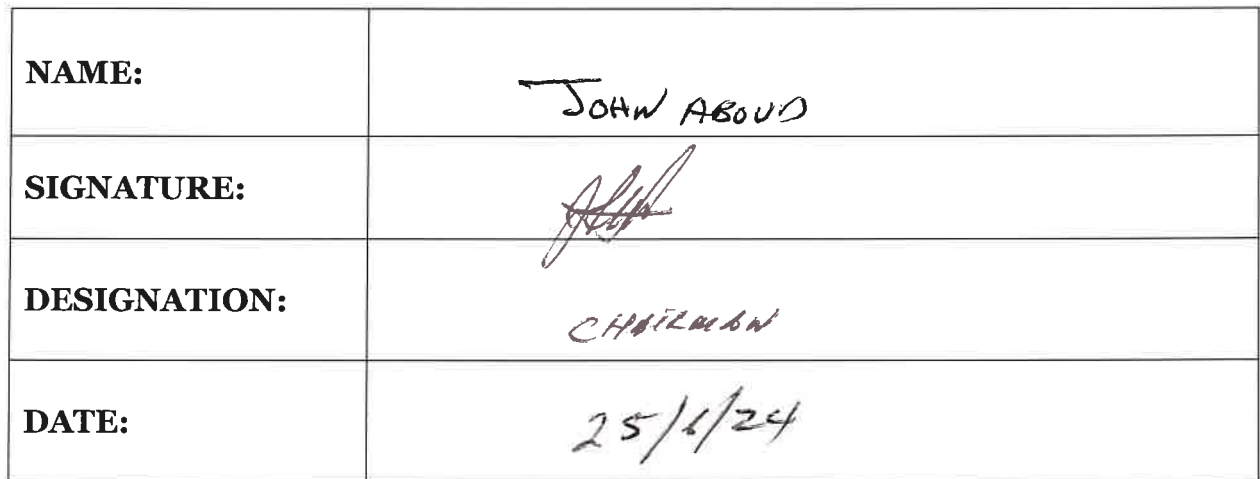 NAME: JOHN ABOUD
SIGNATURE:
DESIGNATION: CHAIRMAN
DATE: 25/6/24